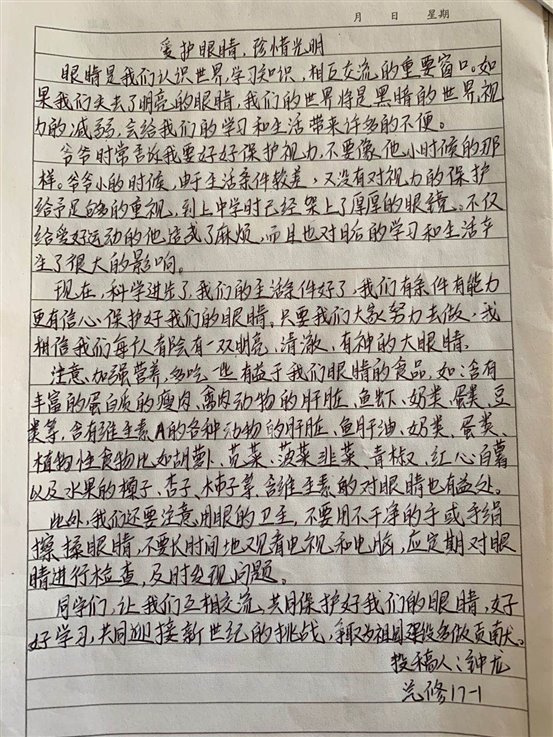 月 日 星期
爱护眼睛,珍惜光明
眼睛是我们认识世界,学习知识,相互交流的重要窗口。如
果我们失去了明亮的眼睛,我们的世界将是黑暗的世界,视
力的减弱,会给我们的学习和生活带来许多的不便。
爷爷时常告诉我要好好保护视力,不要像他小时候的那
样。爷爷小的时候,由于生活条件较差,又没有对视力的保护
给予足够的重视,到上中学时已经架上了厚厚的眼镜。不仅
给爱好运动的他造成了麻烦,而且也对日后的学习和生活产
生了很大的影响。
现在,科学进步了,我们的生活条件好了,我们有条件有能力
更有信心保护好我们的眼睛。只要我们大家努力去做,我
相信我们每人有会有一双明亮、清澈、有神的大眼睛.
注意加强营养,多吃一些有益于我们眼睛的食品,如:含有
丰富的蛋白质的瘦肉、禽肉动物的肝脏、鱼虾、奶类、蛋类、豆
类等,含有维生素A的各种动物的肝脏、鱼肝油、奶类、蛋类、
植物性食物比如胡萝卜、苋菜、菠菜韭菜、青椒、红心白薯
以及水果的橘子、杏子、柿子等,含维生素的对眼睛也有益处。
此外,我们还要注意用眼的卫生,不要用不干净的手或手绢
擦揉眼睛,不要长时间地观看电视和电脑,应定期对眼
睛进行检查,及时发现问题。
同学们,让我们互相交流,共同保护好我们的眼睛,好
好学习,共同迎接新世纪的挑战,争取为祖国建设多做贡献。
投稿人:钟龙
汽修17-1